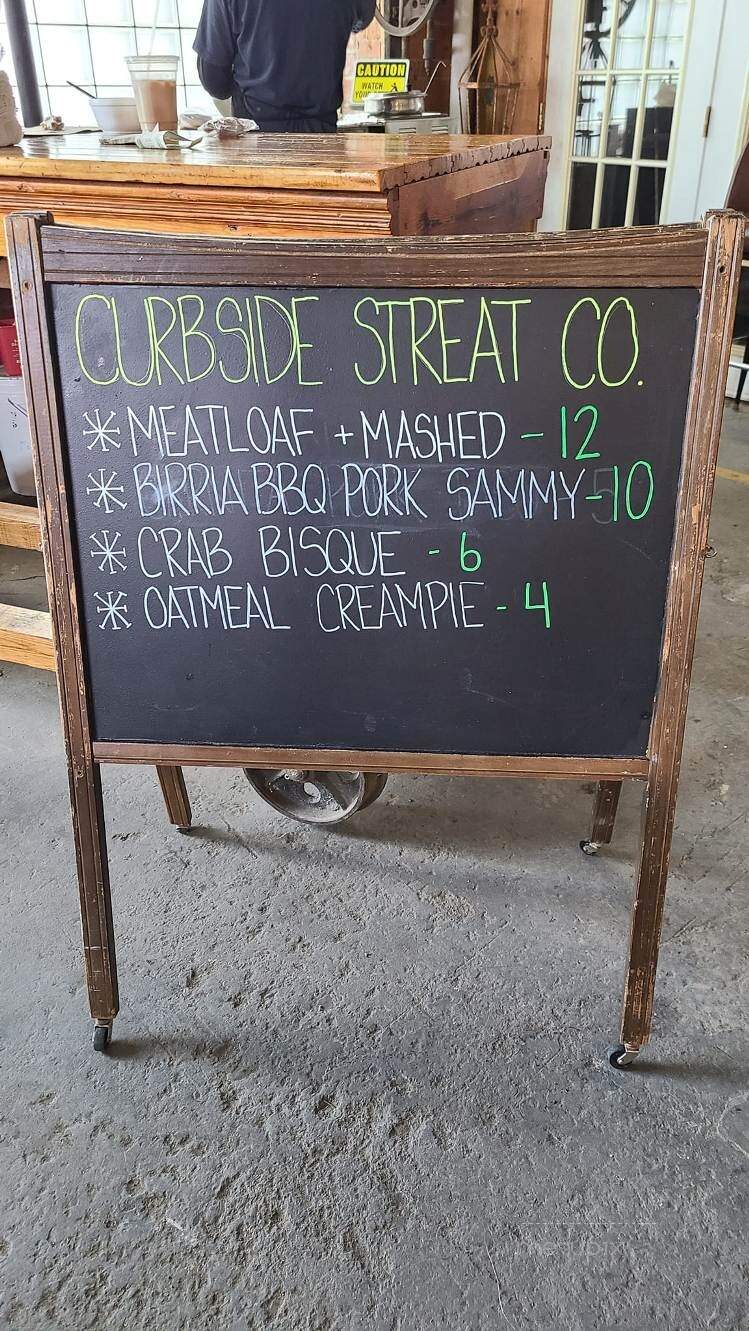 CAUTION
WATCH
YOUR STEP
CURBSIDE STREAT CO.
* MEATLOAF + MASHED - 12
* BIRRIA BBQ PORK SAMMY - 10
* CRAB BISQUE - 6
* OATMEAL CREAMPIE - 4
menupix